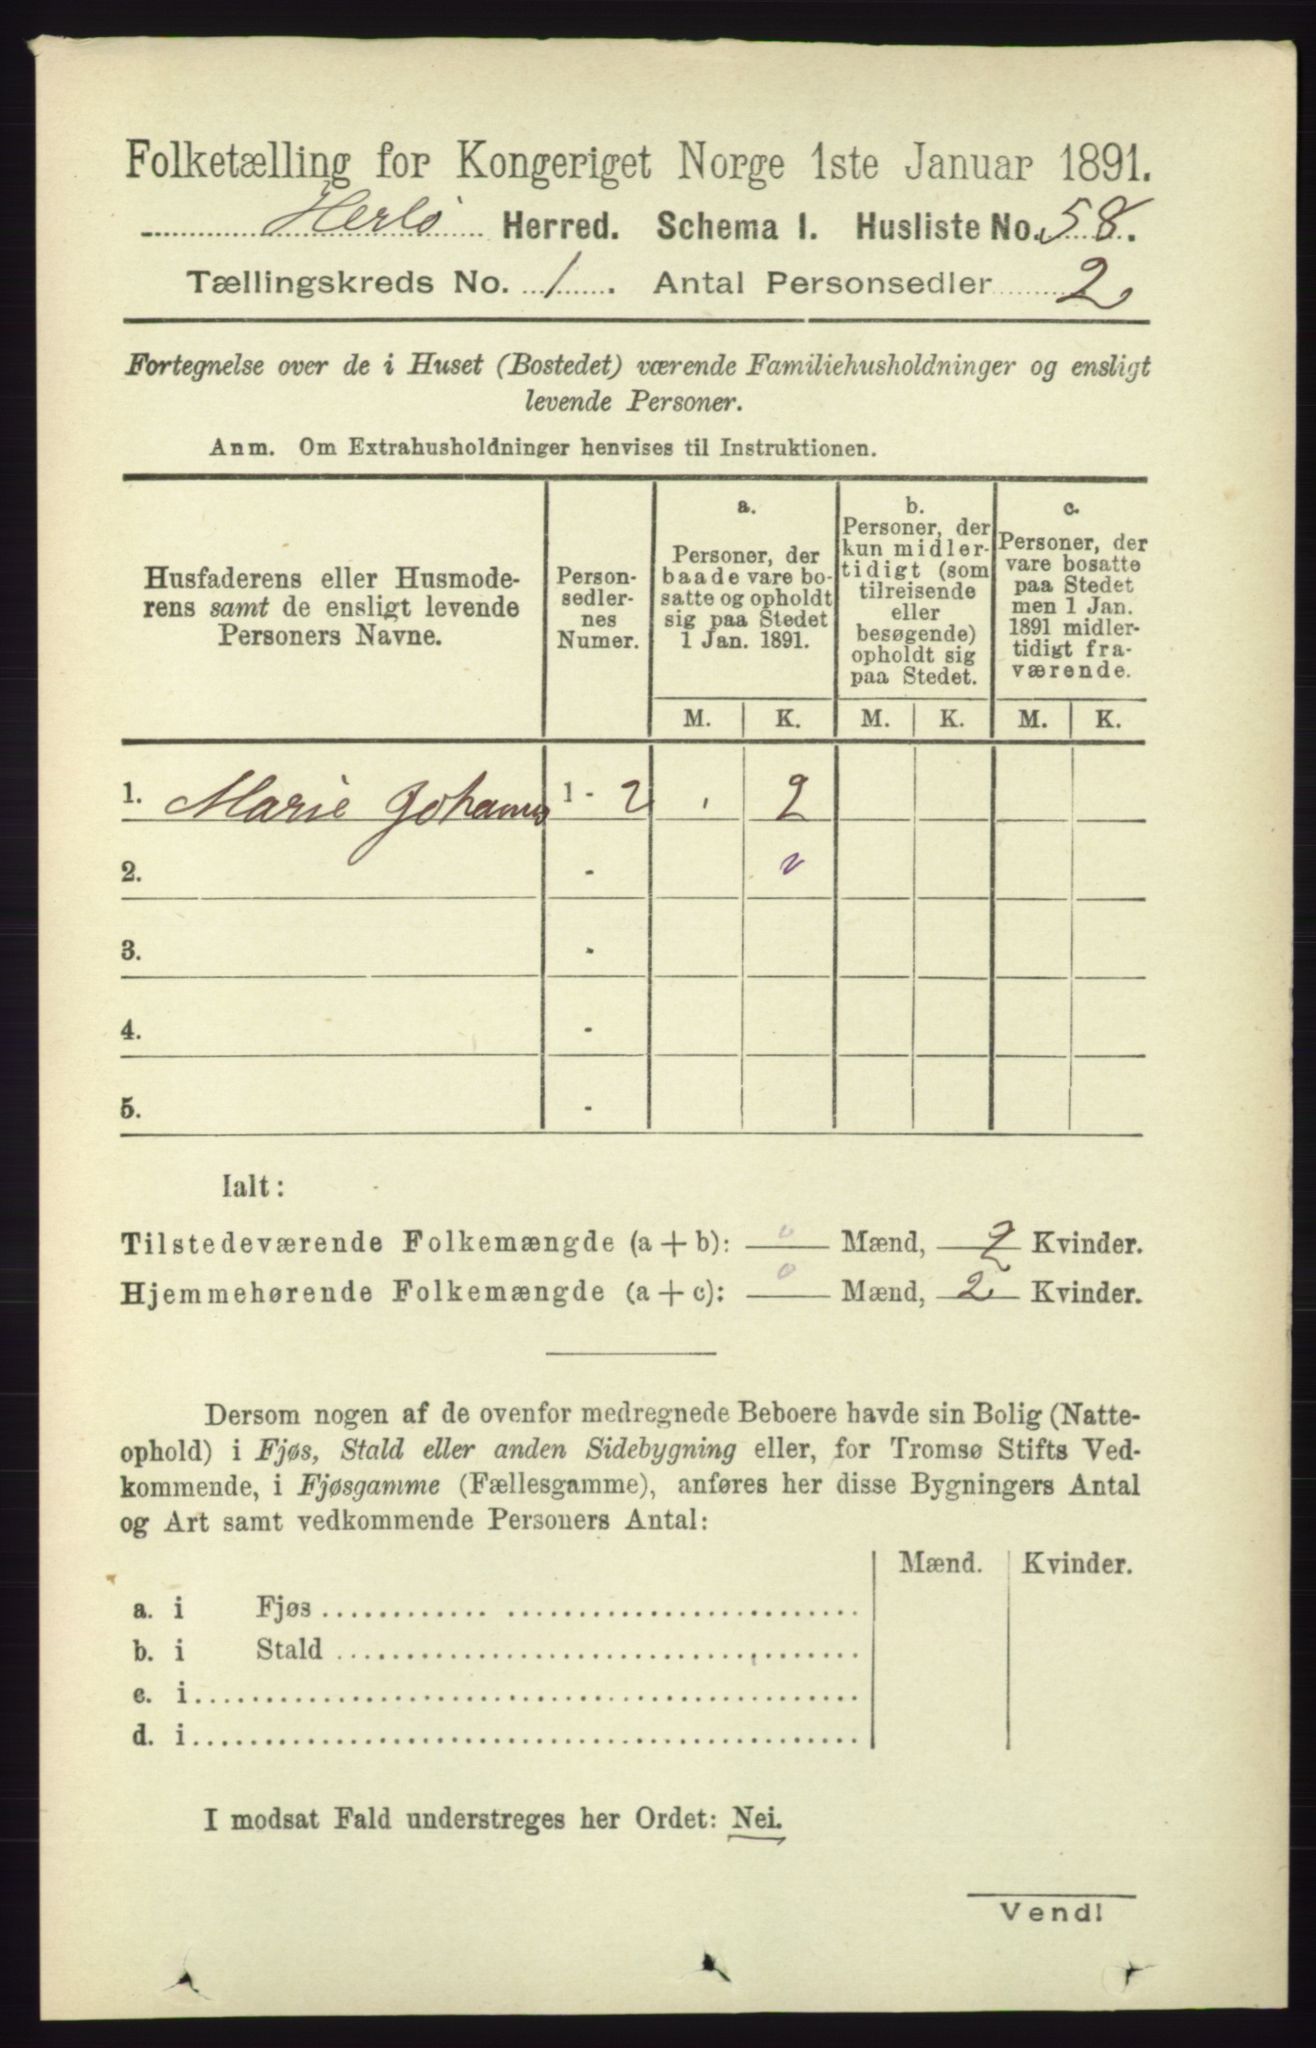 Folketælling for Kongeriget Norge 1ste Januar 1891.
Herlö Herred. Schema I. Husliste No. 58.
Tællingskreds No. 1. Antal Personsedler 2
Fortegnelse over de i Huset (Bostedet) værende Familiehusholdninger og ensligt
levende Personer.
Anm. Om Extrahusholdninger henvises til Instruktionen.
Husfaderens eller Husmode-
rens samt de ensligt levende
Personers Navne.
Person-
sedler-
nes
Numer.
a.
Personer, der
baade vare bo-
satte og opholdt
sig paa Stedet
1 Jan. 1891.
b.
Personer, der
kun midler-
tidigt (som
tilreisende
eller
besøgende)
opholdt sig
paa Stedet.
c.
Personer, der
vare bosatte
paa Stedet
men 1 Jan.
1891 midler-
tidigt fra-
værende.
M. K. M. K. M. K.
1. Marie Johanns 1 - 2 . 2
2. - v
3. -
4. -
5. -
Ialt:
Tilstedeværende Folkemængde (a + b): 0 Mænd, 2 Kvinder.
Hjemmehørende Folkemængde (a + c): 0 Mænd, 2 Kvinder.
Dersom nogen af de ovenfor medregnede Beboere havde sin Bolig (Natte-
ophold) i Fjøs, Stald eller anden Sidebygning eller, for Tromsø Stifts Ved-
kommende, i Fjøsgamme (Fællesgamme), anføres her disse Bygningers Antal
og Art samt vedkommende Personers Antal:
Mænd. Kvinder.
a. i Fjøs
b. i Stald
c. i
d. i
I modsat Fald understreges her Ordet: Nei.
Vend!